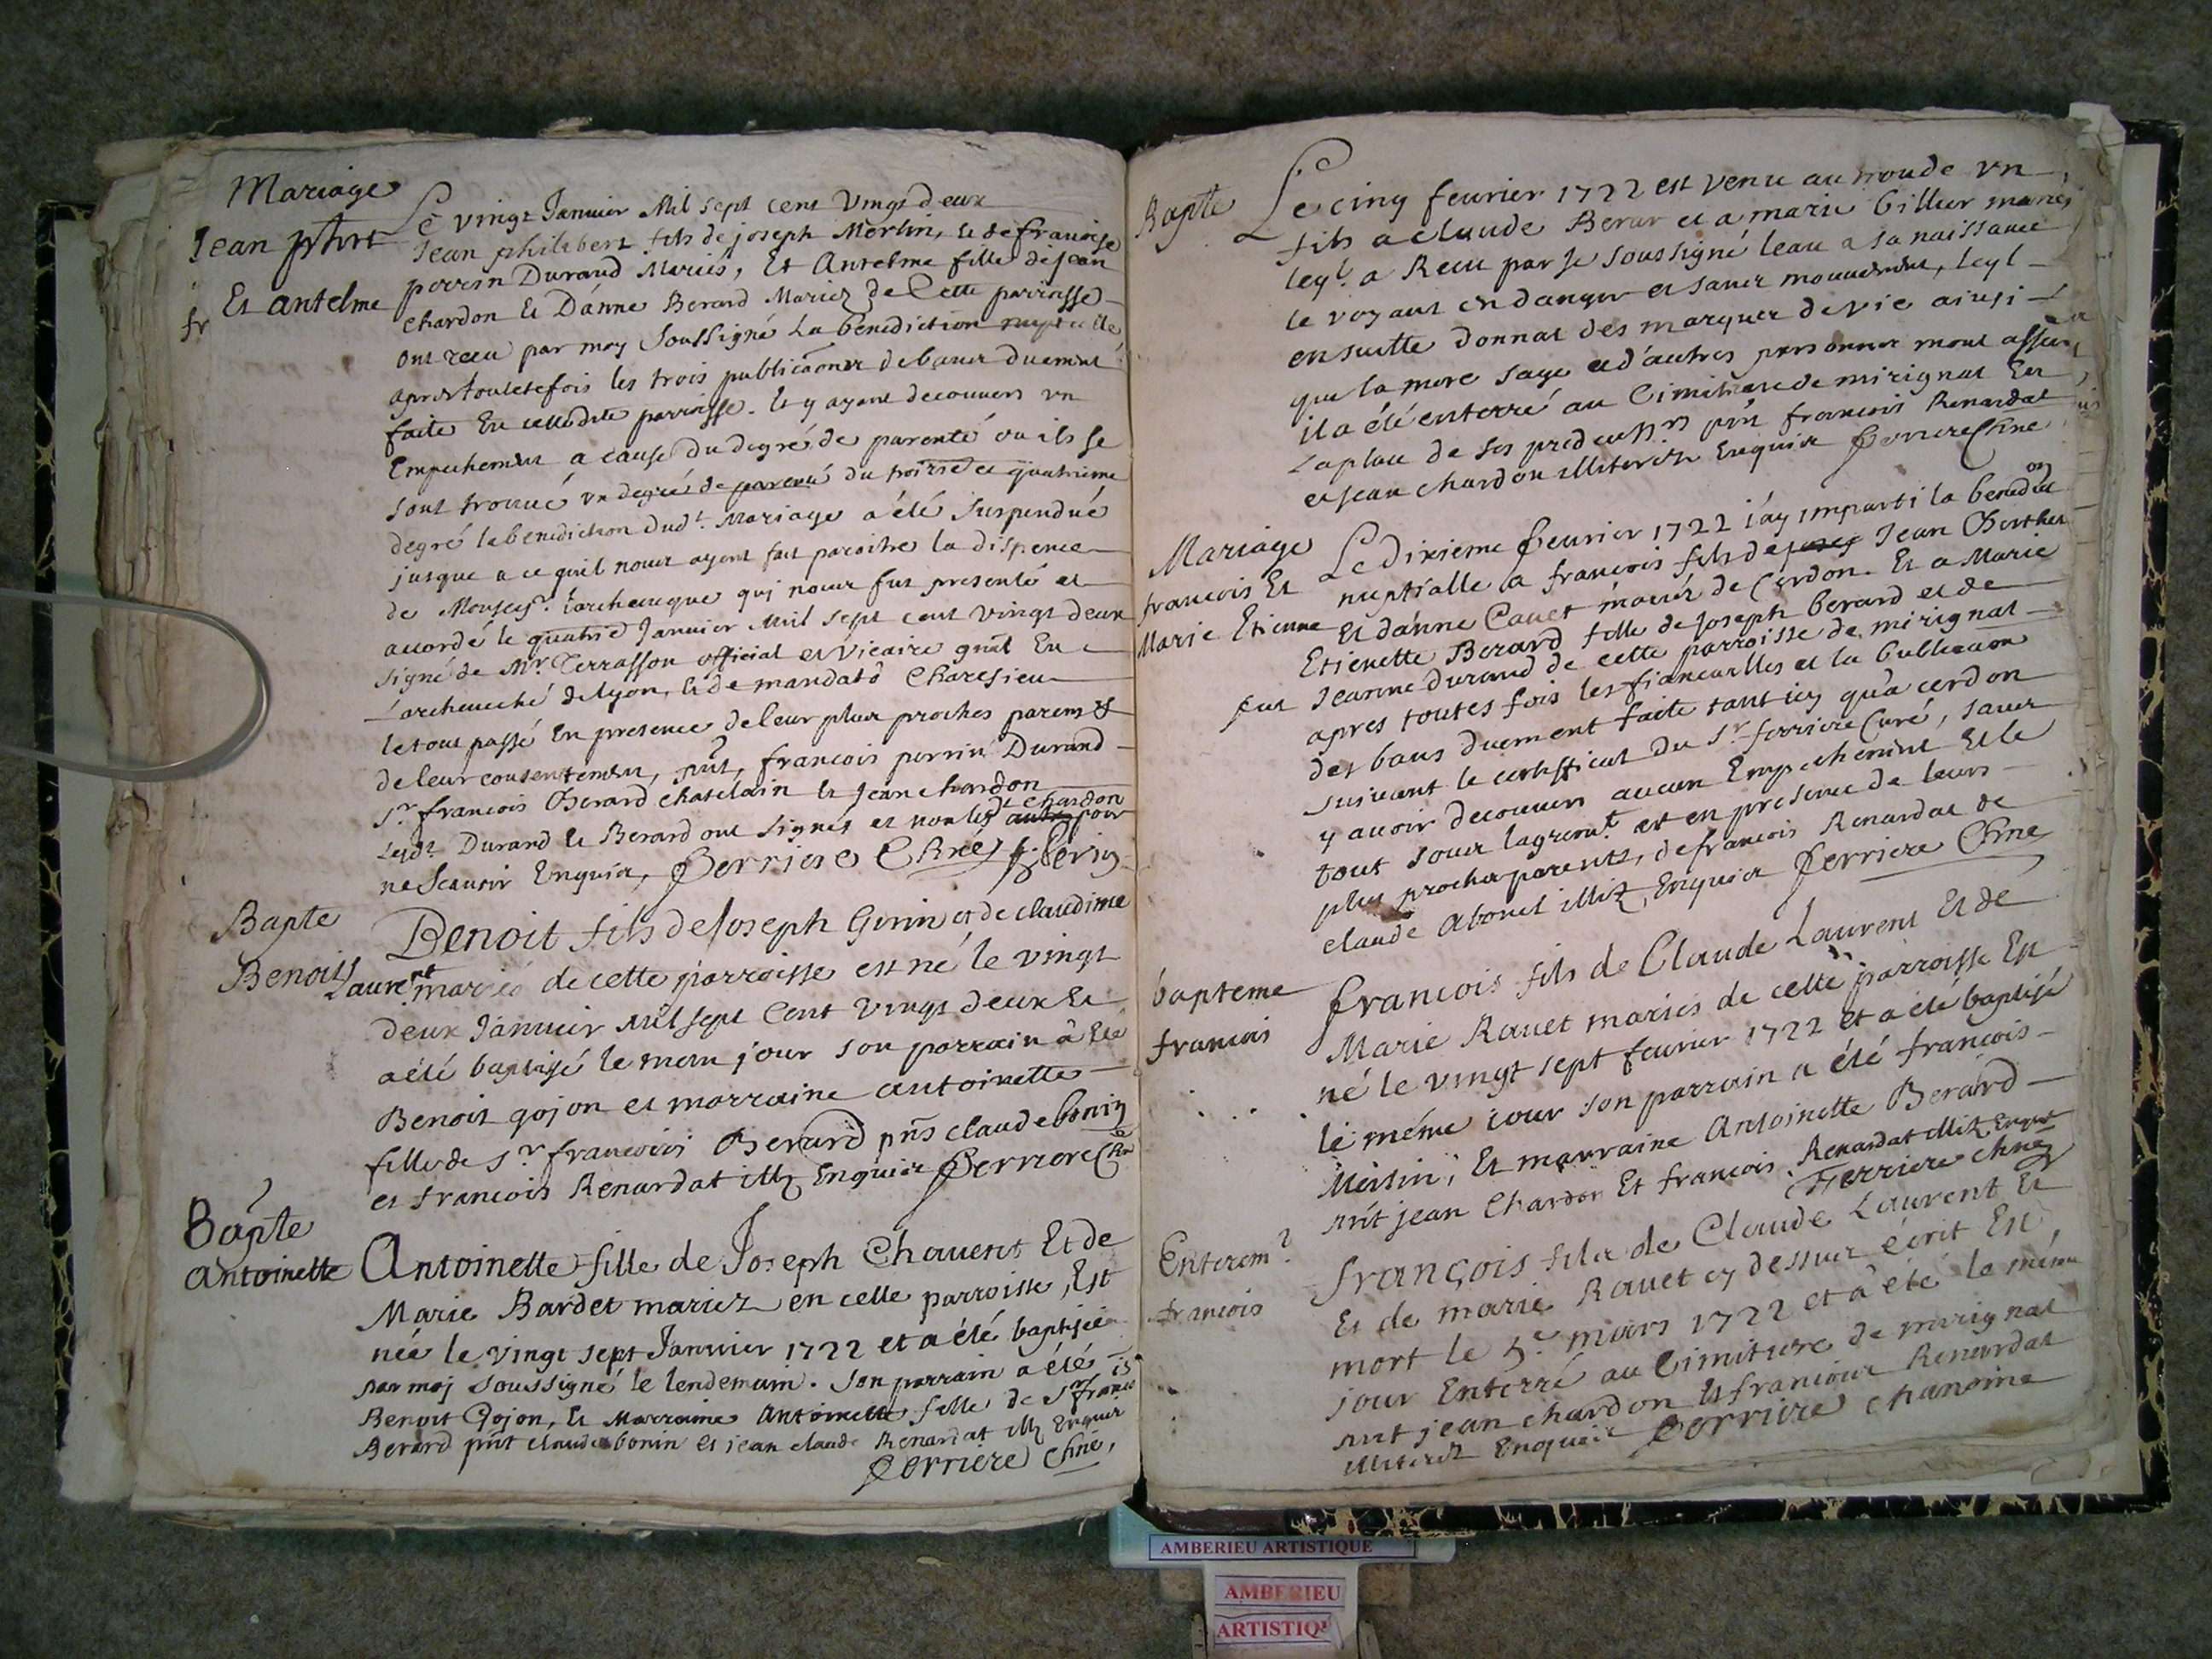 Mariage
Jean phbert
Et antelme
fr
Le vingt Janvier Mil sept cent Vingt deux
Jean philibert fils de joseph Merlin, et de francoise
perrin Durand Mariés, Et Antelme fille de jean
chardon et D'anne Berard Mariez de Cette parroisse
ont receu par moy Soussigné La benediction nuptialle
apres toutefois les trois publicãons de bancs duement
faite En cette dite parroisse. Et y ayant decouvers un
Empechement a cause du degré de parenté ou ils se
sont trouvé un degré de parenté du troisie et quatrieme
degré la benediction dudt. Mariage a été suspendué
jusque a ce quil nous ayent fait paroitre la dispence
de Monseigr. larcheveque qui nous fut presenté et
accordé le quatrie Janvier Mil sept cent vingt deux
signé de Mr. Terrasson official et Vicaire gnãl En
Larcheveché de lyon, et de mandato Charesieu
le tout passé En presence de leur plus proches parens et
de leur consentement, pñt, francois perrin Durand
Sr. francois Berard chatelain et Jean chardon
Lesdt. Durand et Berard ont signés et non ledt chardon pour
ne scavoir Enquis, Ferriere Chñe f. perin
Bapte
Benoit
Laurent
Benoit fils de Joseph Gerin et de claudine
mariés de cette parroisse est né le vingt
deux Janvier Mil sept Cent vingt deux Et
a été baptisé le mem jour son parrain a Eté
Benoit gojon et marraine antoinette
fille de Sr. francois Berard pñs claude bonin
et francois Renardat illz Enquis Ferriere Chñe
Bapte
Antoinette
Antoinette fille de Joseph Chavent Et de
Marie Bardet mariez en cette parroisse, Est
née le vingt sept Janvier 1722 et a été baptisée
par moj soussigné le lendemain. Son parrain a été
Benoit Gojon, Et Marraine Antoinette fille de Sr francois
Berard pñt claude bonin et jean claude Renardat illz Enquis
Ferriere Chñe,
Bapte
Le cinq fevrier 1722 est venu au monde un
fils a claude Berar et a marie billier mariés
leql. a Receu par Je soussigné leau a sa naissance
le voyant en danger et sans mouvement, leql
ensuitte donnat des marques de vie ainsi
que la mere sage et d'autres personnes mont assuré
il a été enterré au Cimitiere de mirignat En
la place de ses predecessrs pñt francois Renardat
et Jean chardon illiterez Enquis Ferriere Chñe
Mariage
francois Et
Marie Etienne
Le Dixieme fevrier 1722 j'ay imparti la benedicon
nuptialle a francois fils de josef Jean Berthet
Et d'anne Cavet mariés de Cerdon. Et a Marie
Etienette Berard fille de Joseph berard et de
feu Jeanne Durand de cette parroisse de mirignat
apres toutes fois les fiancailles et la publicaon
des bans duement faite tant icy qua cerdon
suivant le certifficat du Sr. ferriere Curé, sans
y avoir decouvers aucun Empechement Et le
tout sous lagremt. et en presence de leurs
plus proches parents, de francois Renardat de
claude abonel illitz, Enquis Ferriere Chñe
bapteme
francois
francois fils de Claude Laurent Et de
Marie Ravet mariés de cette parroisse Est
né le vingt sept fevrier 1722 et a été baptisé
le méme jour son parrain a été francois
Merlin, Et marraine Antoinette Berard
pnt jean Chardon Et francois Renardat illitz Enquis
Ferriere chñe
Enterem.
francois
françois fils de Claude Laurent Et
Et de marie Ravet cy dessus écrit Est
mort le 5e. mars 1722 et a été le méme
jour Enterré au Cimitiere de mirignat
pnt jean chardon Et francois Renardat
illiterez Enquis Ferriere chanoine
AMBERIEU ARTISTIQUE
AMBERIEU
ARTISTIQ